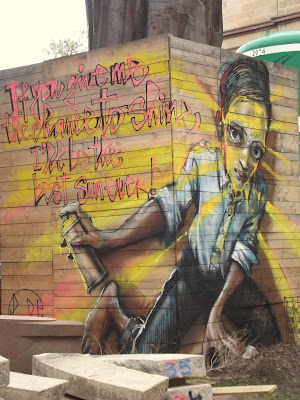 If you give me
the chance to shine,
I'll be the
best sunsuck!
33